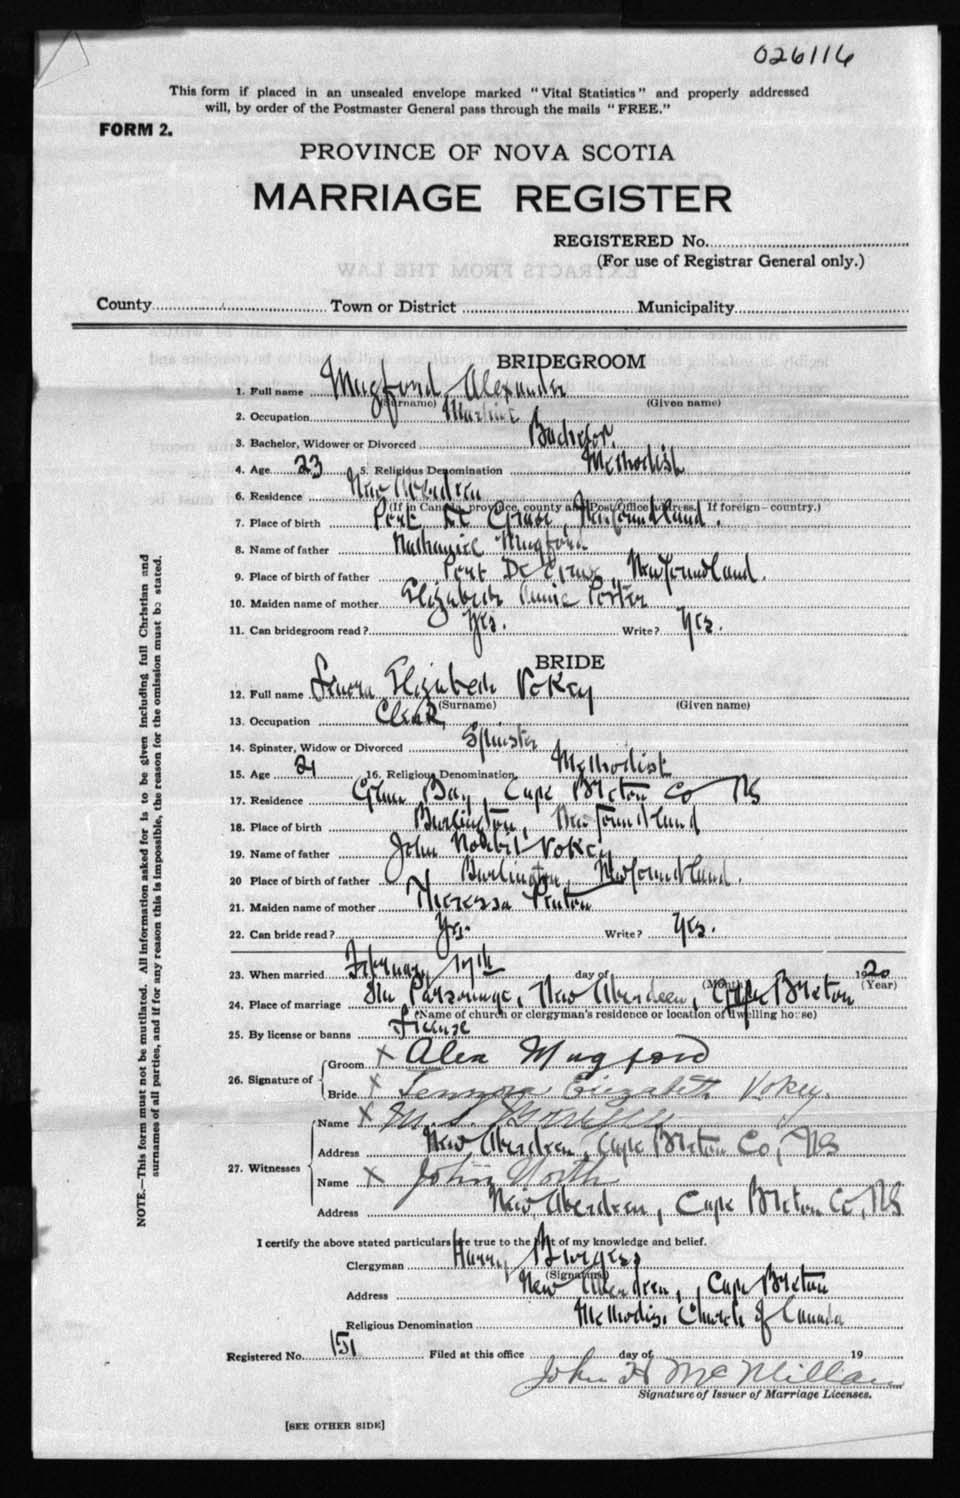 026116
This form if placed in an unsealed envelope marked "Vital Statistics" and properly addressed
will, by order of the Postmaster General pass through the mails "FREE."
FORM 2.
PROVINCE OF NOVA SCOTIA
MARRIAGE REGISTER
REGISTERED No.
(For use of Registrar General only.)
County Town or District Municipality
BRIDEGROOM
1. Full name Mugford Alexander
(Surname) (Given name)
2. Occupation
3. Bachelor, Widower or Divorced Bachelor.
4. Age 23 5. Religious Denomination Methodist
6. Residence New Aberdeen
(If in Canada, province, county and Post Office address. If foreign—country.)
7. Place of birth Port De Grave, Newfoundland.
8. Name of father Nathaniel Mugford
9. Place of birth of father Port De Grave, Newfoundland.
10. Maiden name of mother Elizabeth Annie Porter
11. Can bridegroom read? Yes. Write? Yes.
BRIDE
12. Full name Elizabeth Vokey
(Surname) (Given name)
13. Occupation Clerk
14. Spinster, Widow or Divorced Spinster
15. Age 21 16. Religious Denomination Methodist
17. Residence Glace Bay, Cape Breton Co NS
18. Place of birth Burlington, Newfoundland
19. Name of father John Vokey
20 Place of birth of father Burlington, Newfoundland.
21. Maiden name of mother Theressa
22. Can bride read? Yes. Write? Yes.
23. When married February 17th day of 1920
(Month) (Year)
24. Place of marriage The Parsonage, New Aberdeen, Cape Breton
(Name of church or clergyman's residence or location of dwelling house)
25. By license or banns License
26. Signature of
Groom X Alex Mugford
Bride X Lennora Elizabeth Vokey.
27. Witnesses
Name X M. S.
Address New Aberdeen, Cape Breton Co, NS
Name X John North
Address New Aberdeen, Cape Breton Co, NS
I certify the above stated particulars are true to the best of my knowledge and belief.
Clergyman Harry Burgess
(Signature)
Address New Aberdeen, Cape Breton
Religious Denomination Methodist Church of Canada
Registered No. 151 Filed at this office day of 19
John H McMillan
Signature of Issuer of Marriage Licenses.
[SEE OTHER SIDE]
NOTE.—This form must not be mutilated. All information asked for is to be given including full Christian and
surnames of all parties, and if for any reason this is impossible, the reason for the omission must be stated.